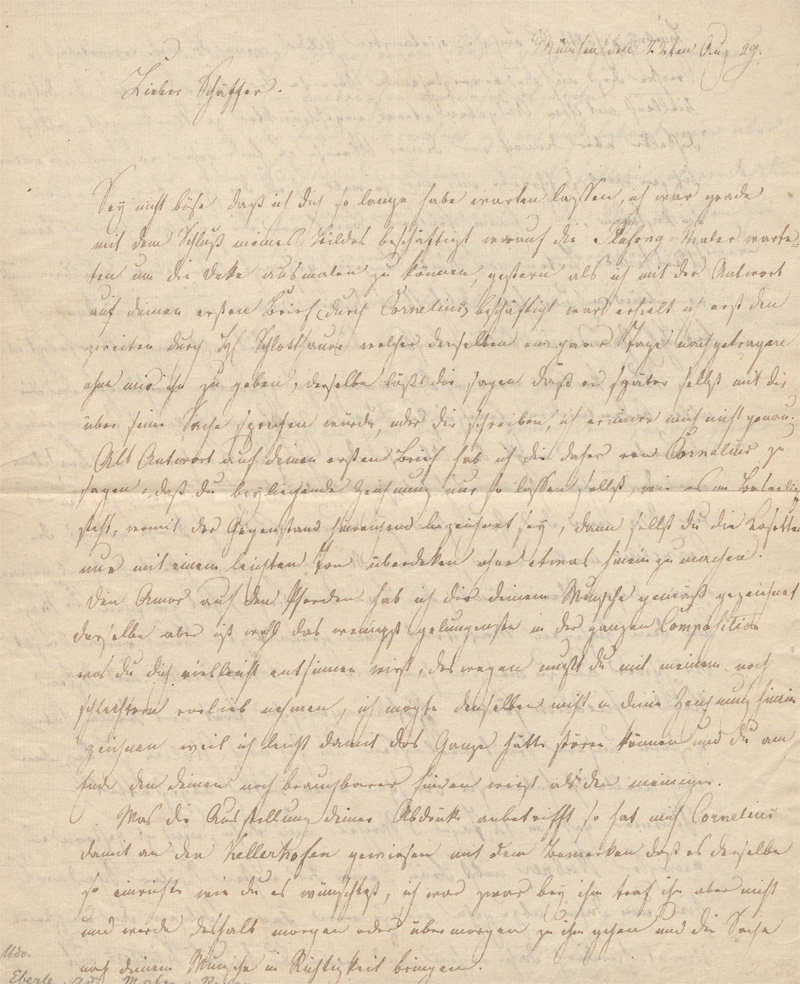 München den 22ten Aug 29.
Lieber Schäffer.
Sey nicht böse daß ich dich so lange habe warten lassen, ich war grade
mit dem Schluß meines Bildes beschäftigt worauf die Maler warte-
ten um die Deke ausmalen zu können, gestern als ich mit der Antwort
auf deinen ersten Brief (durch Cornelius) beschäftigt war erhielt ich erst den
zweiten durch Schlotthauer welcher denselben ein paar Tage nachgetragen
ohne mir ihn zu geben, derselbe läßt dir sagen daß er später selbst mit dir
über seine Sache sprechen würde, oder dir schreiben, ich erinnre mich nicht genau.
Als Antwort auf deinen ersten Brief hab ich dir daher von Cornelius zu
sagen, daß du beyliegende Zeichnung nur so lassen sollst, wie es im
steht, womit der Gegenstand hinreichend bezeichnet sey, dann sollst du die
nur mit einem leichten Ton überdeken ohne etwas hinein zu machen.
Den Amor auf den Pferden hab ich dir deinem Wunsche gemäß gezeichnet
derselbe aber ist wohl das wenigst gelungenste in der ganzen Composition
was du dich vielleicht entsinnen wirst, deswegen mußt du mit meinem noch
schlechtern vorlieb nehmen, ich mogte denselben nicht in deine Zeichnung hinein
zeichnen weil ich leicht damit das Ganze hätte stören können und du am
Ende den deinen noch brauchbarer finden wirst als den meinigen.
Was die Ausstellung deiner Abdrüke anbetrifft so hat mich Cornelius
damit an den Kellerhofen gewiesen mit dem Bemerken daß es derselbe
so einrichte wie du es wünschtest, ich war zwar bey ihm traf ihn aber nicht
und werde deshalb morgen oder übermorgen zu ihm gehen und die Sache
nach deinem Wunsche in Richtigkeit bringen.
Eberle